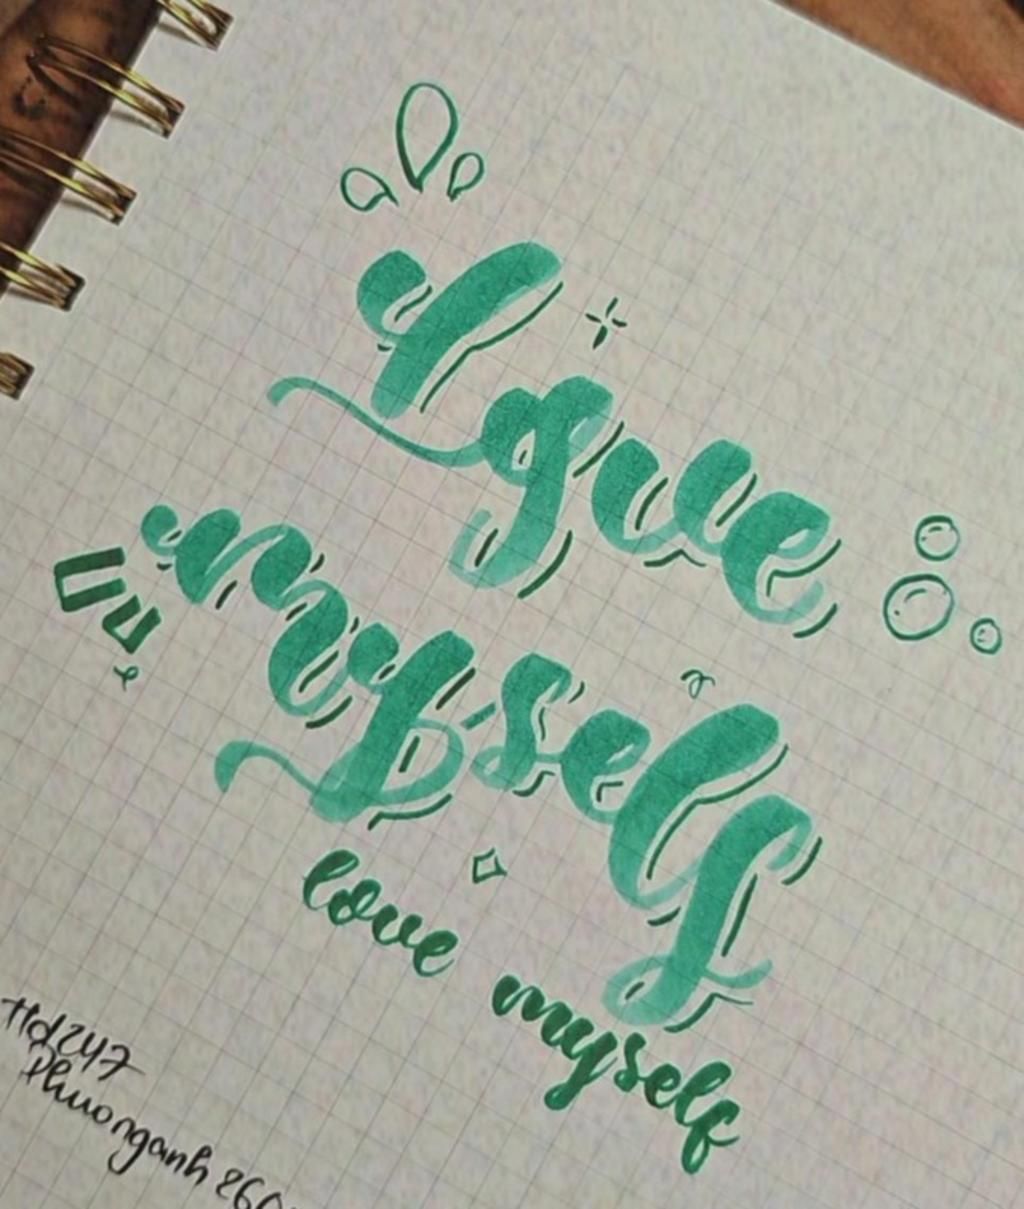 Love
myself
love myself
Hd247
Phuonganh260